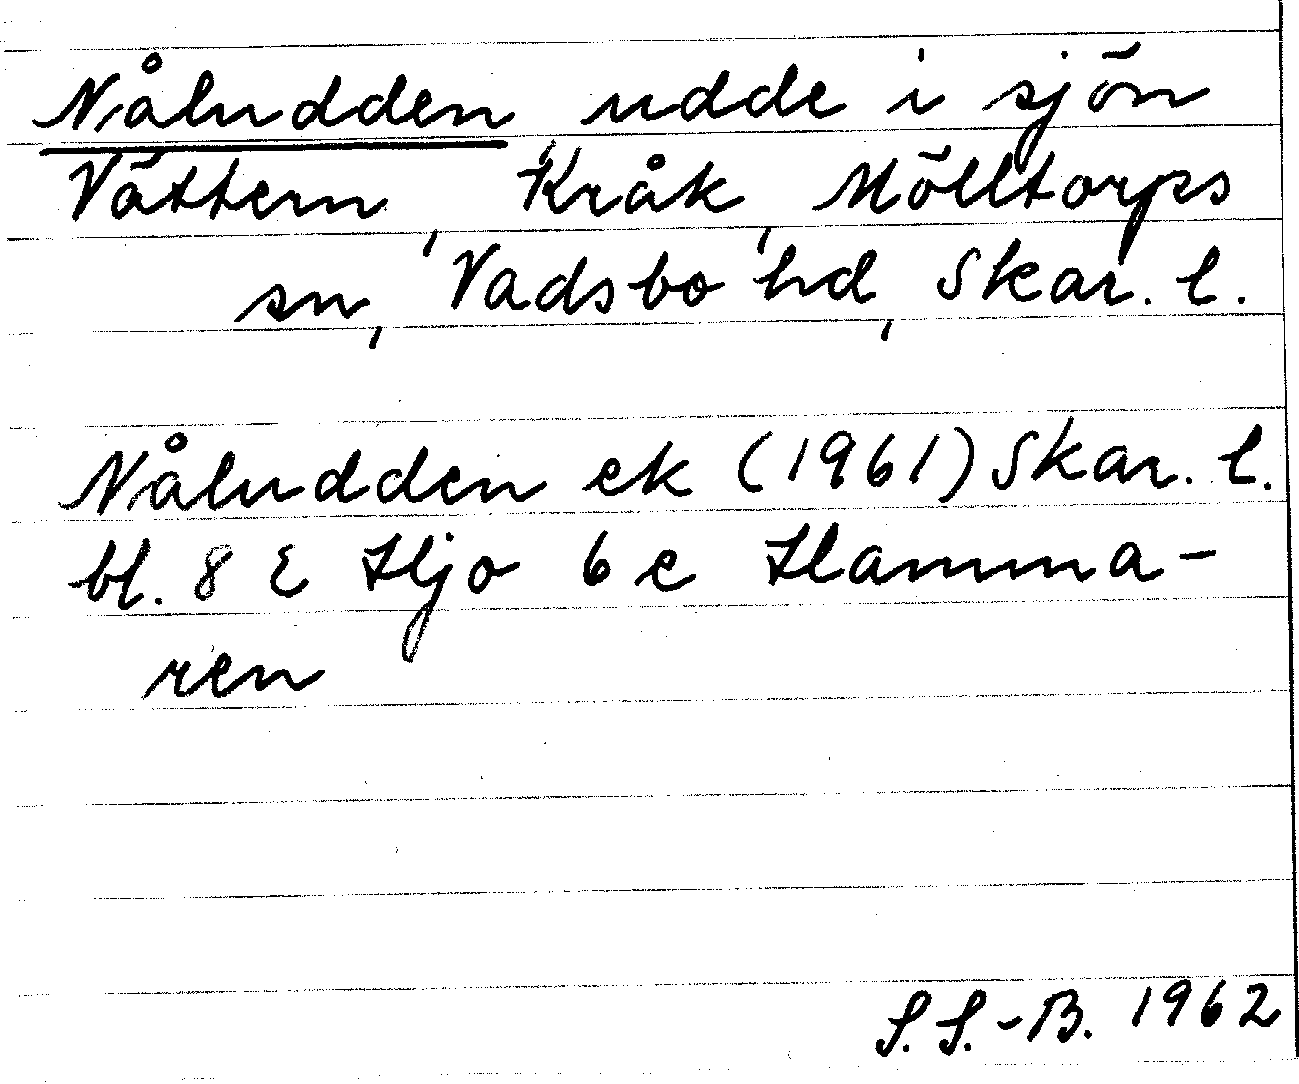 Nåludden udde i sjön
Vättern, Kråk, Mölltorps
sn, Vadsbo hd, Skar. l.
Nåludden ek (1961) Skar. l.
bl. 8 E Hjo 6 e Hamma-
ren
S. S.-B. 1962